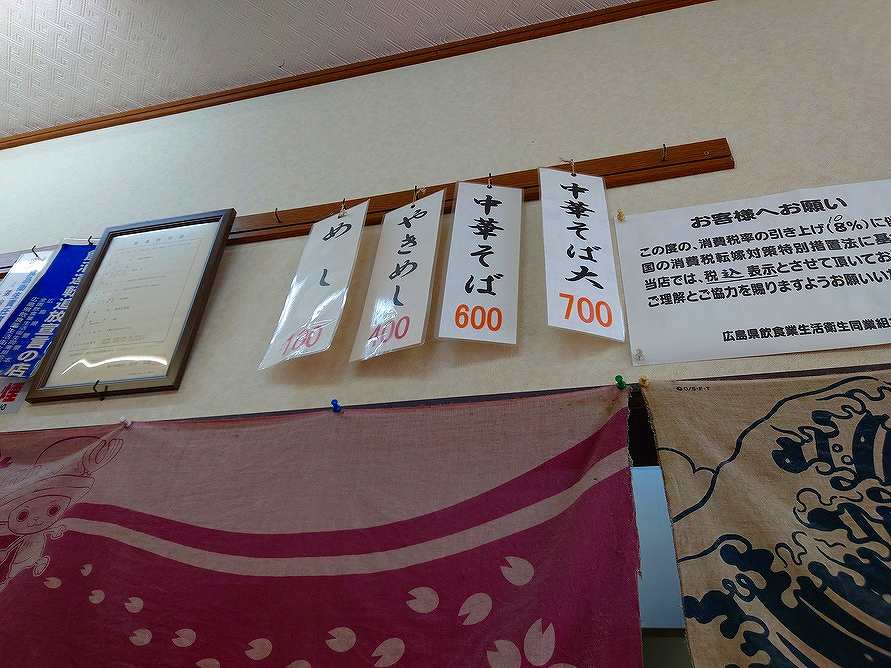 めし
100
やきめし
400
中華そば
600
中華そば大
700
お客様へお願い
この度の、消費税率の引き上げ(8%)に
10
国の消費税転嫁対策特別措置法に基
当店では、税込表示とさせて頂いてお
ご理解とご協力を賜りますようお願いい
広島県飲食業生活衛生同業組
放置の店
煙
©O/S・F・T